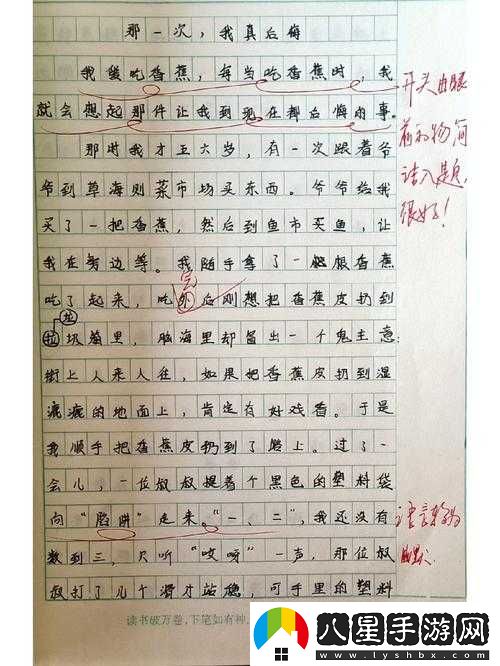 那一次，我真后悔
我爱吃香蕉，每当吃香蕉时，我
就会想起那件让我到现在都后悔的事。
那时我才五六岁，有一次跟着爷
爷到草海则菜市场买东西。爷爷给我
买了一把香蕉，然后到鱼市买鱼，让
我在旁边等。我随手拿了一根香蕉
吃了起来，吃完后刚想把香蕉皮扔到
垃圾筒里，脑海里却冒出一个鬼主意：
街上人来人往，如果把香蕉皮扔到湿
漉漉的地面上，肯定有好戏看。于是
我顺手把香蕉皮扔到了路上。过了一
会儿，一位叔叔提着个黑色的塑料袋
向“陷阱”走来。“一、二”，我还没有
数到三，只听“哎呀”一声，那位叔
叔打了几个滑才站稳，可手里的塑料
开头由眼
前的物简
洁入题，
很好！
语言较为
幽默
读书破万卷，下笔如有神
八星手游网